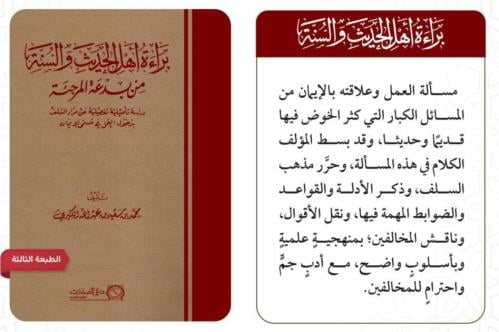 براءة أهل الحديث والسنة
من بدعة المرجئة
دراسة تأصيلية تفصيلية عن مراد السلف
بدخول العمل في مسمى الإيمان
تأليف
محمد بن سعيد بن عبد الله الكثيري
الطبعة الثالثة
براءة أهل الحديث والسنة
مسألة العمل وعلاقته بالإيمان من
المسائل الكبار التي كثر الخوض فيها
قديمًا وحديثًا، وقد بسط المؤلف
الكلام في هذه المسألة، وحرَّر مذهب
السلف، وذكر الأدلة والقواعد
والضوابط المهمة فيها، ونقل الأقوال،
وناقش المخالفين؛ بمنهجيةٍ علميةٍ
وبأسلوبٍ واضح، مع أدبٍ جمٍّ
واحترامٍ للمخالفين.